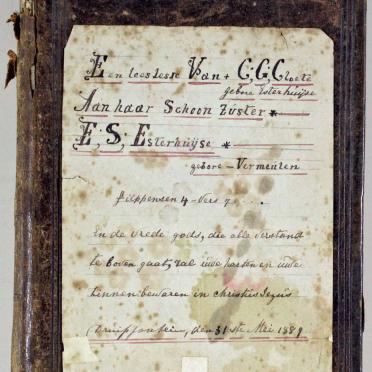 Een leeslesse Van + C,G,Cloete
gebore Esterhuijse
Aan haar Schoon Zúster
E, S, Esterhuijse
gebore - Vermeulen
Filippensen 4 - Vers 7
En de vrede gods, die alle verstand
te boven gaat, zal úwe harten en úwe
zinnen bewaren in christus Jezús
den 31 ste Mei 1889